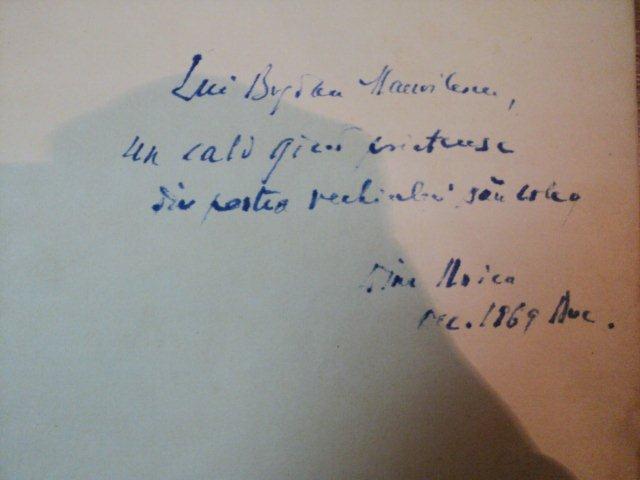 Lui Bogdan
un cald gând prietenesc
din partea vechiului său coleg
Dinu Noica
1969 Buc.